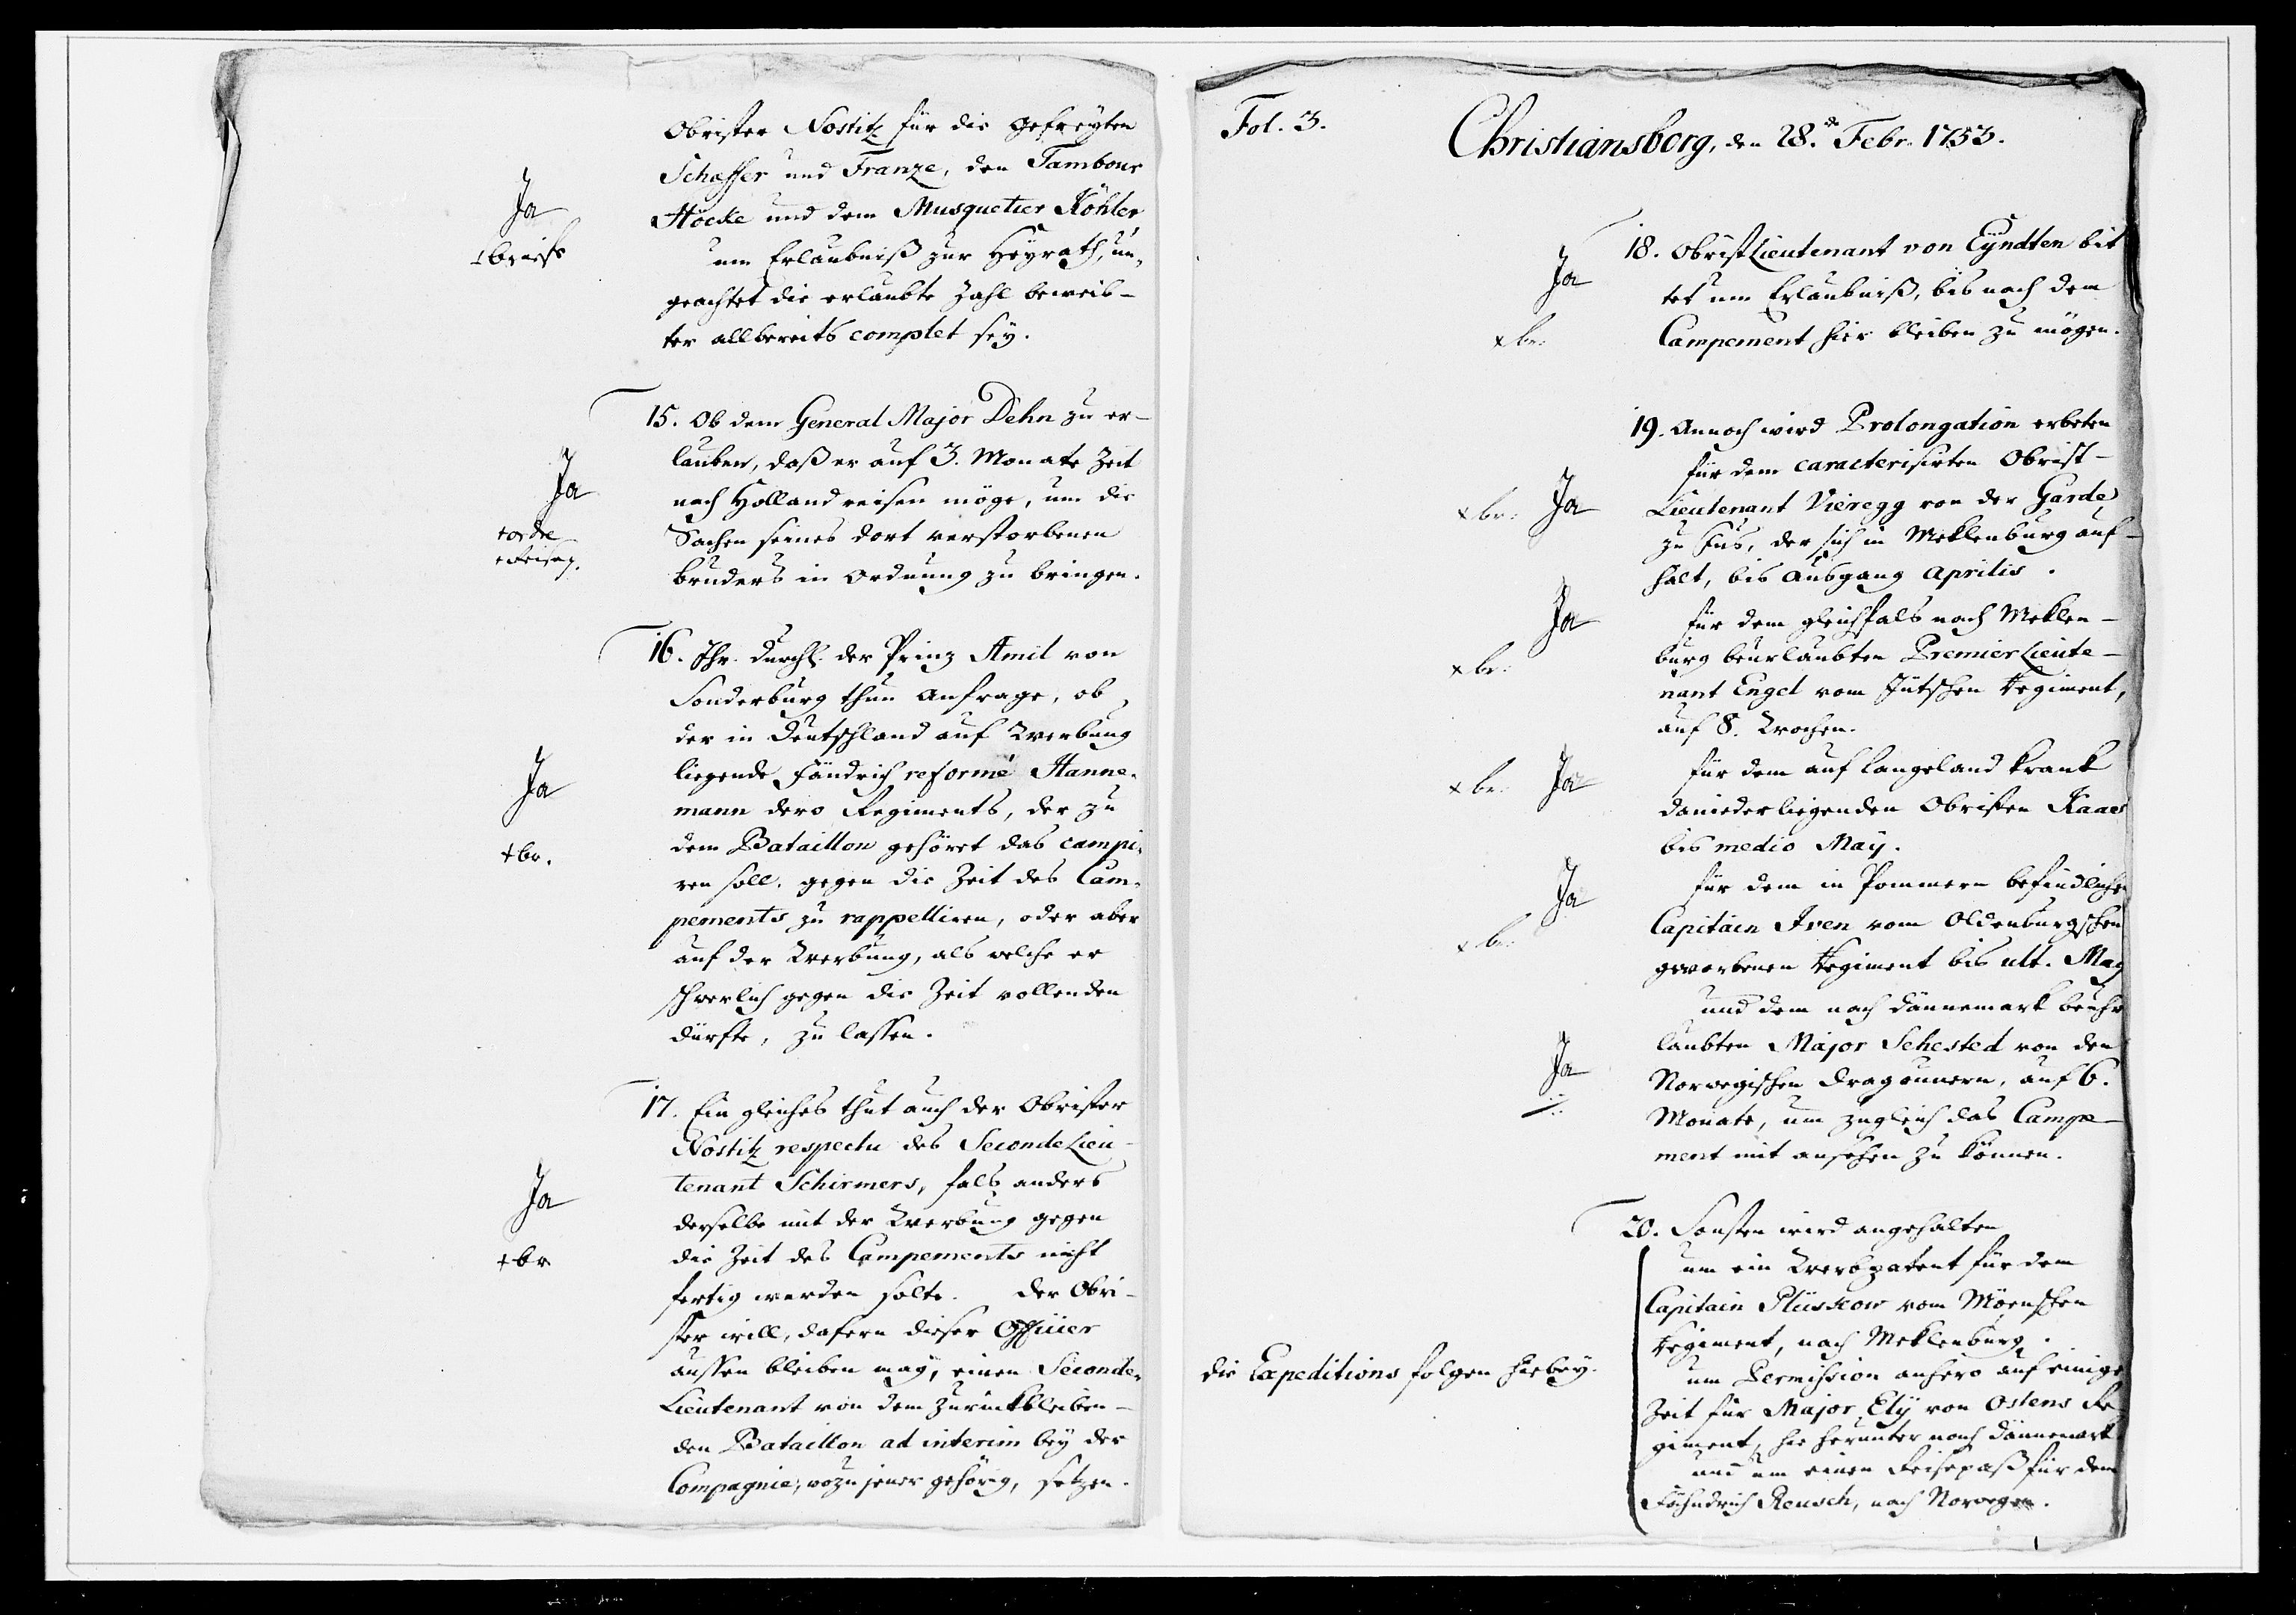 Obrister Nostitz für die gefreyten
Schæffer und Franze, den Tambour
Höcke und dem Musquetier Köhler
Ja
um Erlaubniß zur Heyrath, un-
+ briefe
geachtet die erlaubte Zahl beweib-
ter allbereits complet sey.
15. Ob dem General Major Dehn zu er-
lauben, daß er auf 3. Monate Zeit
Ja
nach Holland reisen möge, um die
+ordre
Sachen seines dort verstorbenen
+Reisep.
Bruders in Ordnung zu bringen.
16. Ihr. Durchl. der Prinz Æmil von
Sonderburg thun Anfrage, ob
der in Deutschland auf Werbung
Ja
liegende Fändrich reformé Hanne-
mann dero Regiments, der zu
+br.
dem Bataillon gehöret das campi-
ren soll, gegen die Zeit des Cam-
pements zu rappelliren, oder aber
auf der Werbung, als welche er
schwerlich gegen die Zeit vollenden
dürfte, zu lassen.
17. Ein gleiches thut auch der Obrister
Nostitz respectu des SecondeLieu-
Ja
tenant Schirmers, fals anders
derselbe mit der Werbung gegen
+br
die Zeit des Campements nicht
fertig werden solte. Der Obri-
ster will, dafern dieser Officier
aussen bleiben mag, einen Seconde-
Lieutenant von dem zurückbleiben-
den Bataillon ad interim bey der
Compagnie, wozu jener gehörig, setzen.
Fol. 3.
Christiansborg, den 28. de Febr. 1753.
18. ObristLieutenant von Eyndten bit
Ja
tet um Erlaubniß, bis nach dem
x br:
Campement hier bleiben zu mögen.
19. Annoch wird Prolongation erbeten
für dem caracterisirten Obrist-
x br: Ja
Lieutenant Vieregg von der Garde
zu Fus, der sich in Meklenburg auf-
hält, bis Ausgang Aprilis.
Ja
für dem gleichfals nach Meklen-
x br:
burg beurlaubten PremierLieute-
nant Engel vom Jütschen Regiment,
auf 8. Wochen.
x br: Ja
für dem auf Langeland krank
daniederliegenden Obristen Kaas
bis medio May.
Ja
für dem in Pommern befindlichen
x br:
Capitain Iven vom Oldenburgschen
geworbenen Regiment bis ult. May
und dem nach Dännemark beuhr
Ja
laubten Major Sehested von den
Norwegischen Dragounern, auf 6.
Monate, um zugleich das Campe-
ment mit ansehen zu können.
20. Sonsten wird angehalten
um ein Werbpatent für dem
Capitain Plüskow vom Möenschen
Regiment, nach Meklenburg.
die Expeditions folgen hiebey.
um Permission anhero auf einige
Zeit für Major Ely von Ostens Re-
giment, hie herunter nach Dännemark
und um einen Reisepaß für dem
Fähndrich Reusch, nach Norwegen.